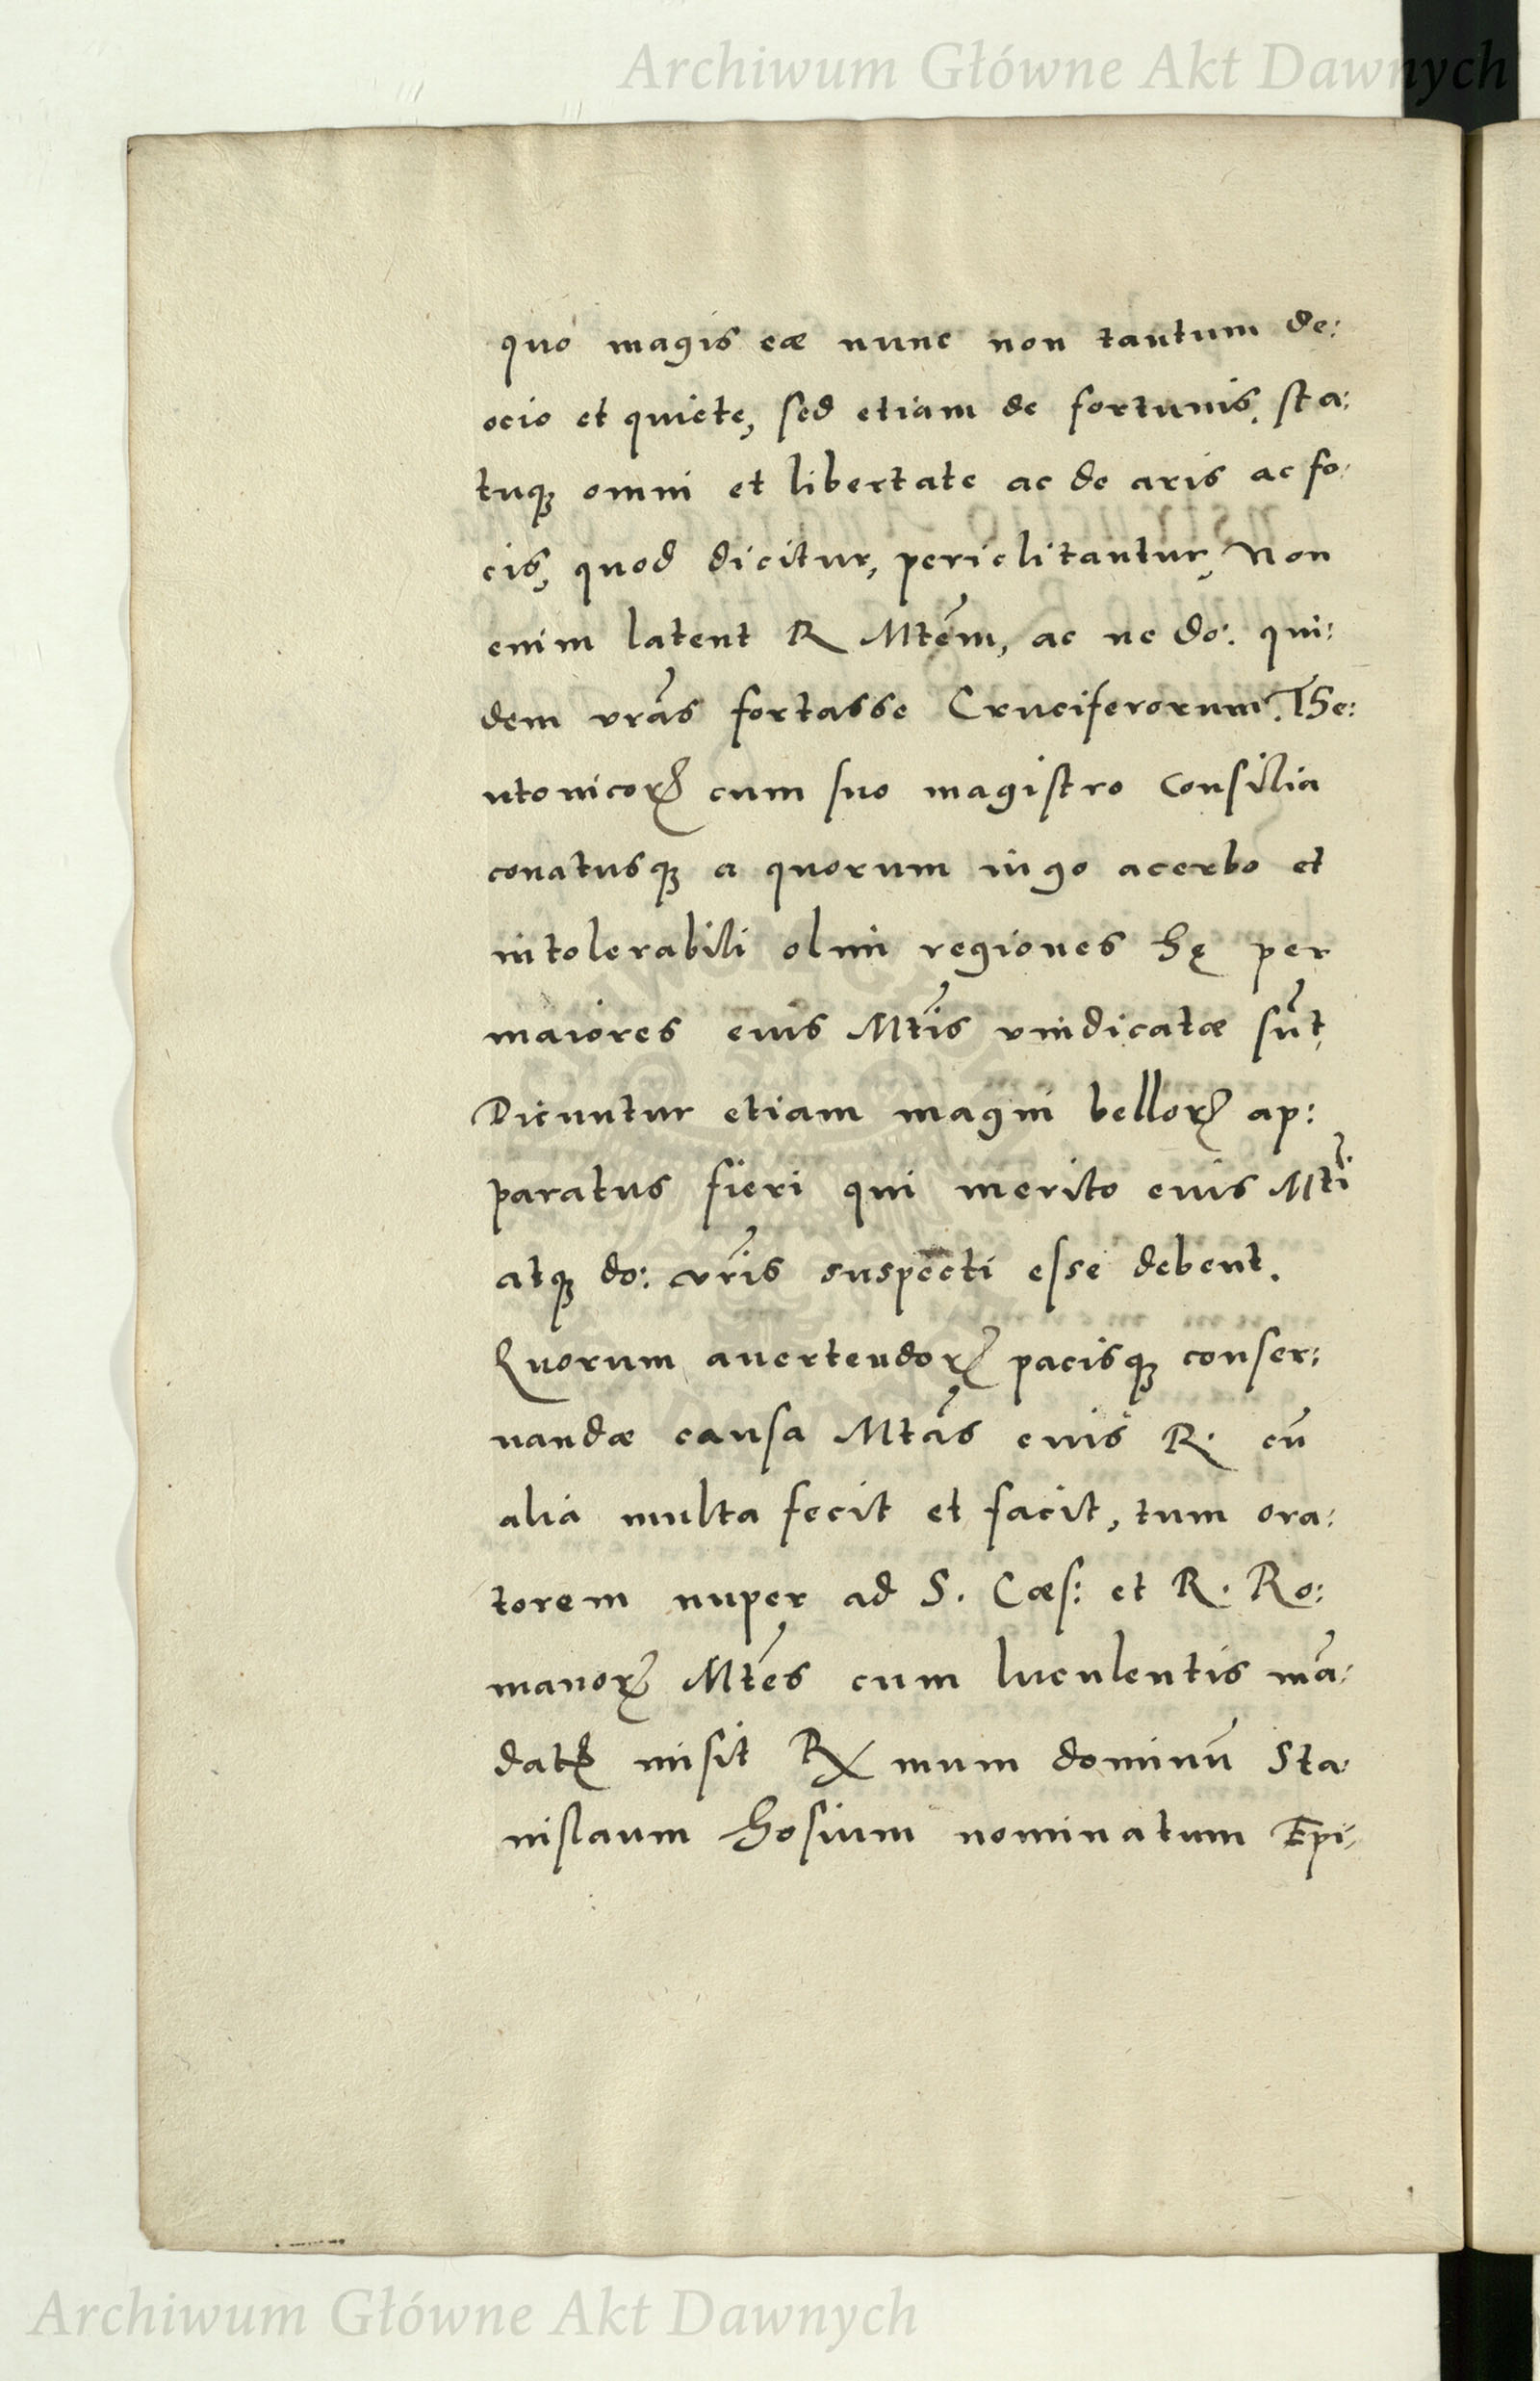 Archiwum Główne Akt Dawnych
quo magis eæ nunc non tantum de:
ocio et quiete, sed etiam de fortunis, sta:
tuqꝫ omni et libertate ac de aris ac fo:
cis, quod dicitur, periclitantur, Non
enim latent R Mtẽm, ac ne do: qui:
dem vrãs fortasse Cruciferorum The:
utonicoꝝ cum suo magistro Consilia
conatusqꝫ a quorum iugo acerbo et
intolerabili olim regiones hę per
maiores eius Mtĩs vindicatæ sũt,
Dicuntur etiam magni belloꝝ ap:
paratus fieri qui merito eius Mtĩ
atqꝫ do: vrĩs suspecti esse debent.
Quorum avertendoꝝ pacisqꝫ conser:
uandæ causa Mtãs eius R. cũ
alia multa fecit et facit, tum ora:
torem nuper ad S. Cæs: et R. Ro:
manoꝝ Mtẽs cum luculentis mã:
datꝭ misit Rx mum dominũ Sta:
nislaum Hosium nominatum Epi:
Archiwum Główne Akt Dawnych